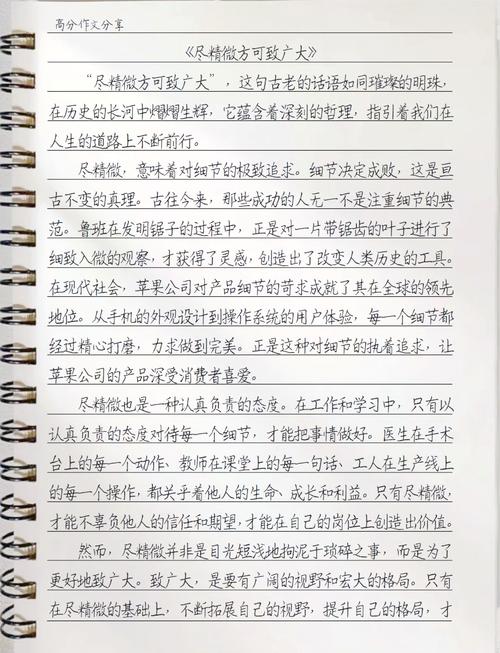 高分作文分享
《尽精微方可致广大》
“尽精微方可致广大”，这句古老的话语如同璀璨的明珠，
在历史的长河中熠熠生辉，它蕴含着深刻的哲理，指引着我们在
人生的道路上不断前行。
尽精微，意味着对细节的极致追求。细节决定成败，这是亘
古不变的真理。古往今来，那些成功的人无一不是注重细节的典
范。鲁班在发明锯子的过程中，正是对一片带锯齿的叶子进行了
细致入微的观察，才获得了灵感，创造出了改变人类历史的工具。
在现代社会，苹果公司对产品细节的苛求成就了其在全球的领先
地位。从手机的外观设计到操作系统的用户体验，每一个细节都
经过精心打磨，力求做到完美。正是这种对细节的执着追求，让
苹果公司的产品深受消费者喜爱。
尽精微也是一种认真负责的态度。在工作和学习中，只有以
认真负责的态度对待每一个细节，才能把事情做好。医生在手术
台上的每一个动作、教师在课堂上的每一句话、工人在生产线上
的每一个操作，都关乎着他人的生命、成长和利益。只有尽精微，
才能不辜负他人的信任和期望，才能在自己的岗位上创造出价值。
然而，尽精微并非是目光短浅地拘泥于琐碎之事，而是为了
更好地致广大。致广大，是要有广阔的视野和宏大的格局。只有
在尽精微的基础上，不断拓展自己的视野，提升自己的格局，才